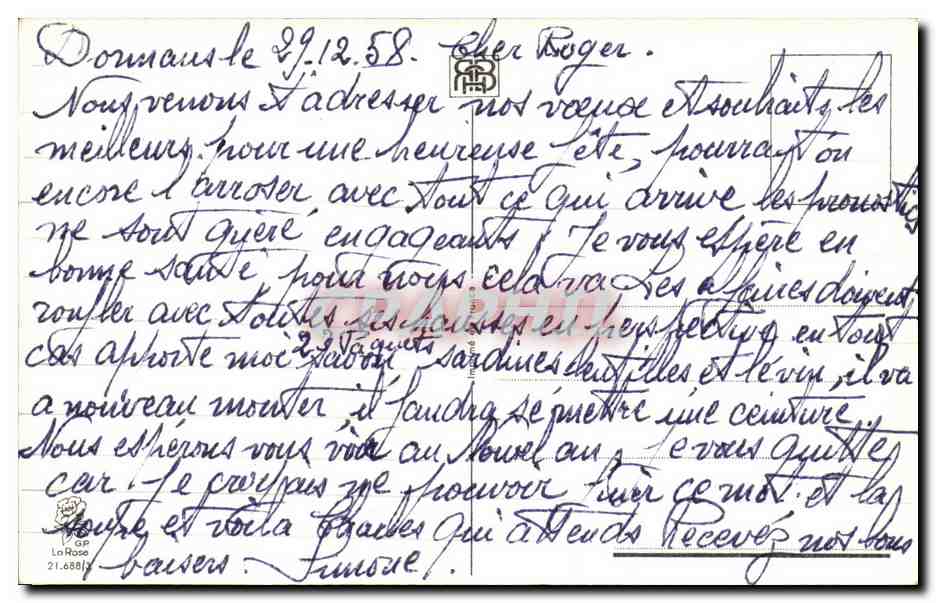 Dormans le 29.12.58. Cher Roger.
Nous venons t'adresser nos vœux et souhaits les
meilleurs pour une heureuse fête, pourra t'on
encore l'arroser avec tout ce qui arrive les pronostics
ne sont guère engageants. Je vous espère en
bonne santé pour nous cela va. Les affaires doivent
ronfler avec toutes ses hausses en perspective en tout
2 paquets
cas apporte moi savon sardines lentilles et le vin, il va
a nouveau monter il faudra se mettre une ceinture.
Nous espérons vous voir au Nouvel an, Je vous quitte
car je croyais ne pouvoir finir ce mot et la
soupe et voila Charles qui attends Recevez nos bons
baisers. Simone.
Imprimé
La Rose
G.P
21.688/3